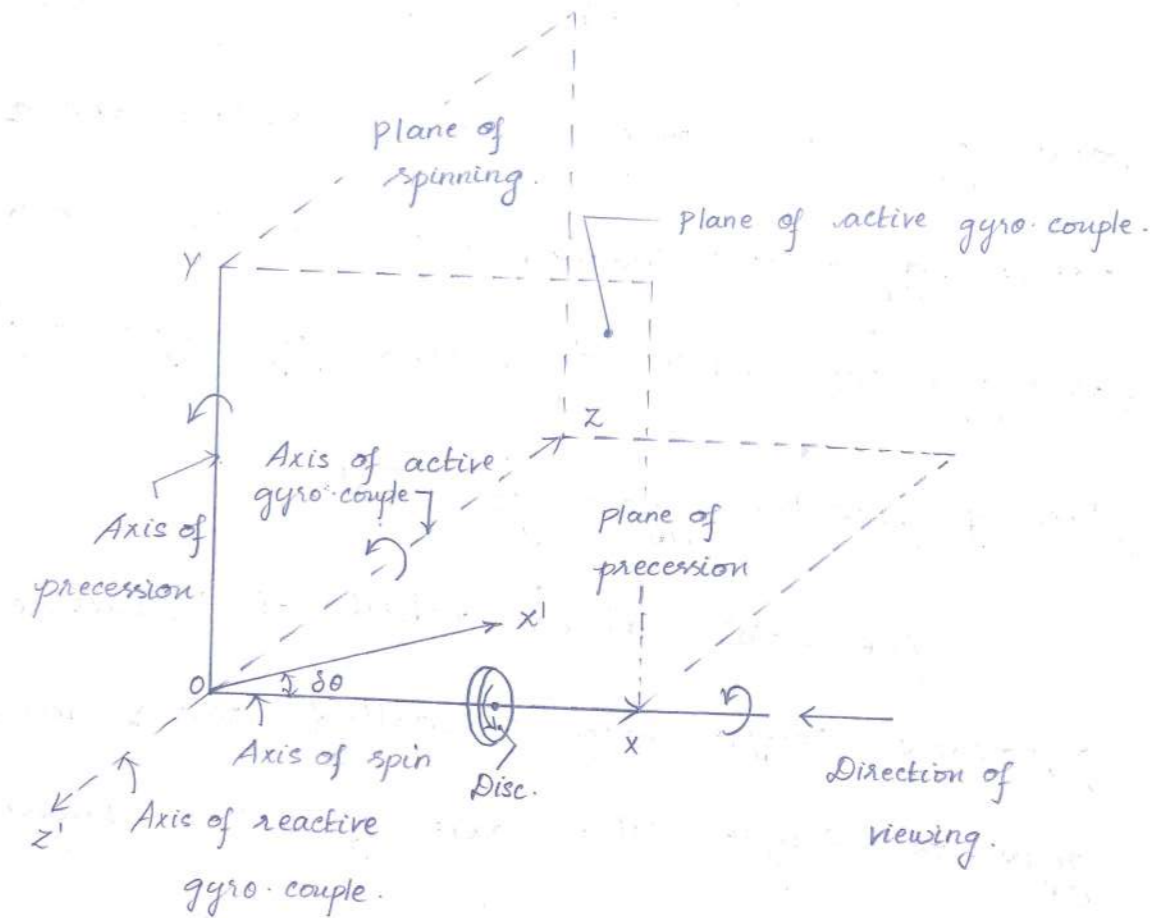 plane of
spinning.
plane of active gyro. couple.
Y
Z
Axis of active
gyro. couple
Axis of
precession
plane of
precession
X'
O
δθ
Axis of spin
Disc.
X
Direction of
viewing.
Z'
Axis of reactive
gyro. couple.